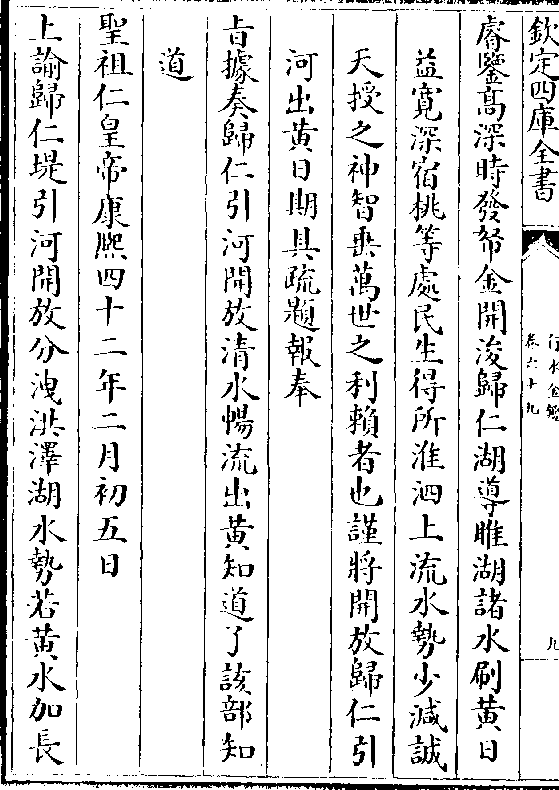 欽定四庫全書
行水金鑑
卷六十九
九
睿鑒髙深時發帑金開浚歸仁湖導睢湖諸水刷黃日
益寛深宿桃等處民生得所淮泗上流水勢少減誠
天授之神智垂萬世之利賴者也謹將開放歸仁引
河出黃日期具疏題報奉
㫖據奏歸仁引河開放清水暢流出黃知道了該部知
道
聖祖仁皇帝康熈四十二年二月初五日
上諭歸仁堤引河開放分洩洪澤湖水勢若黃水加長